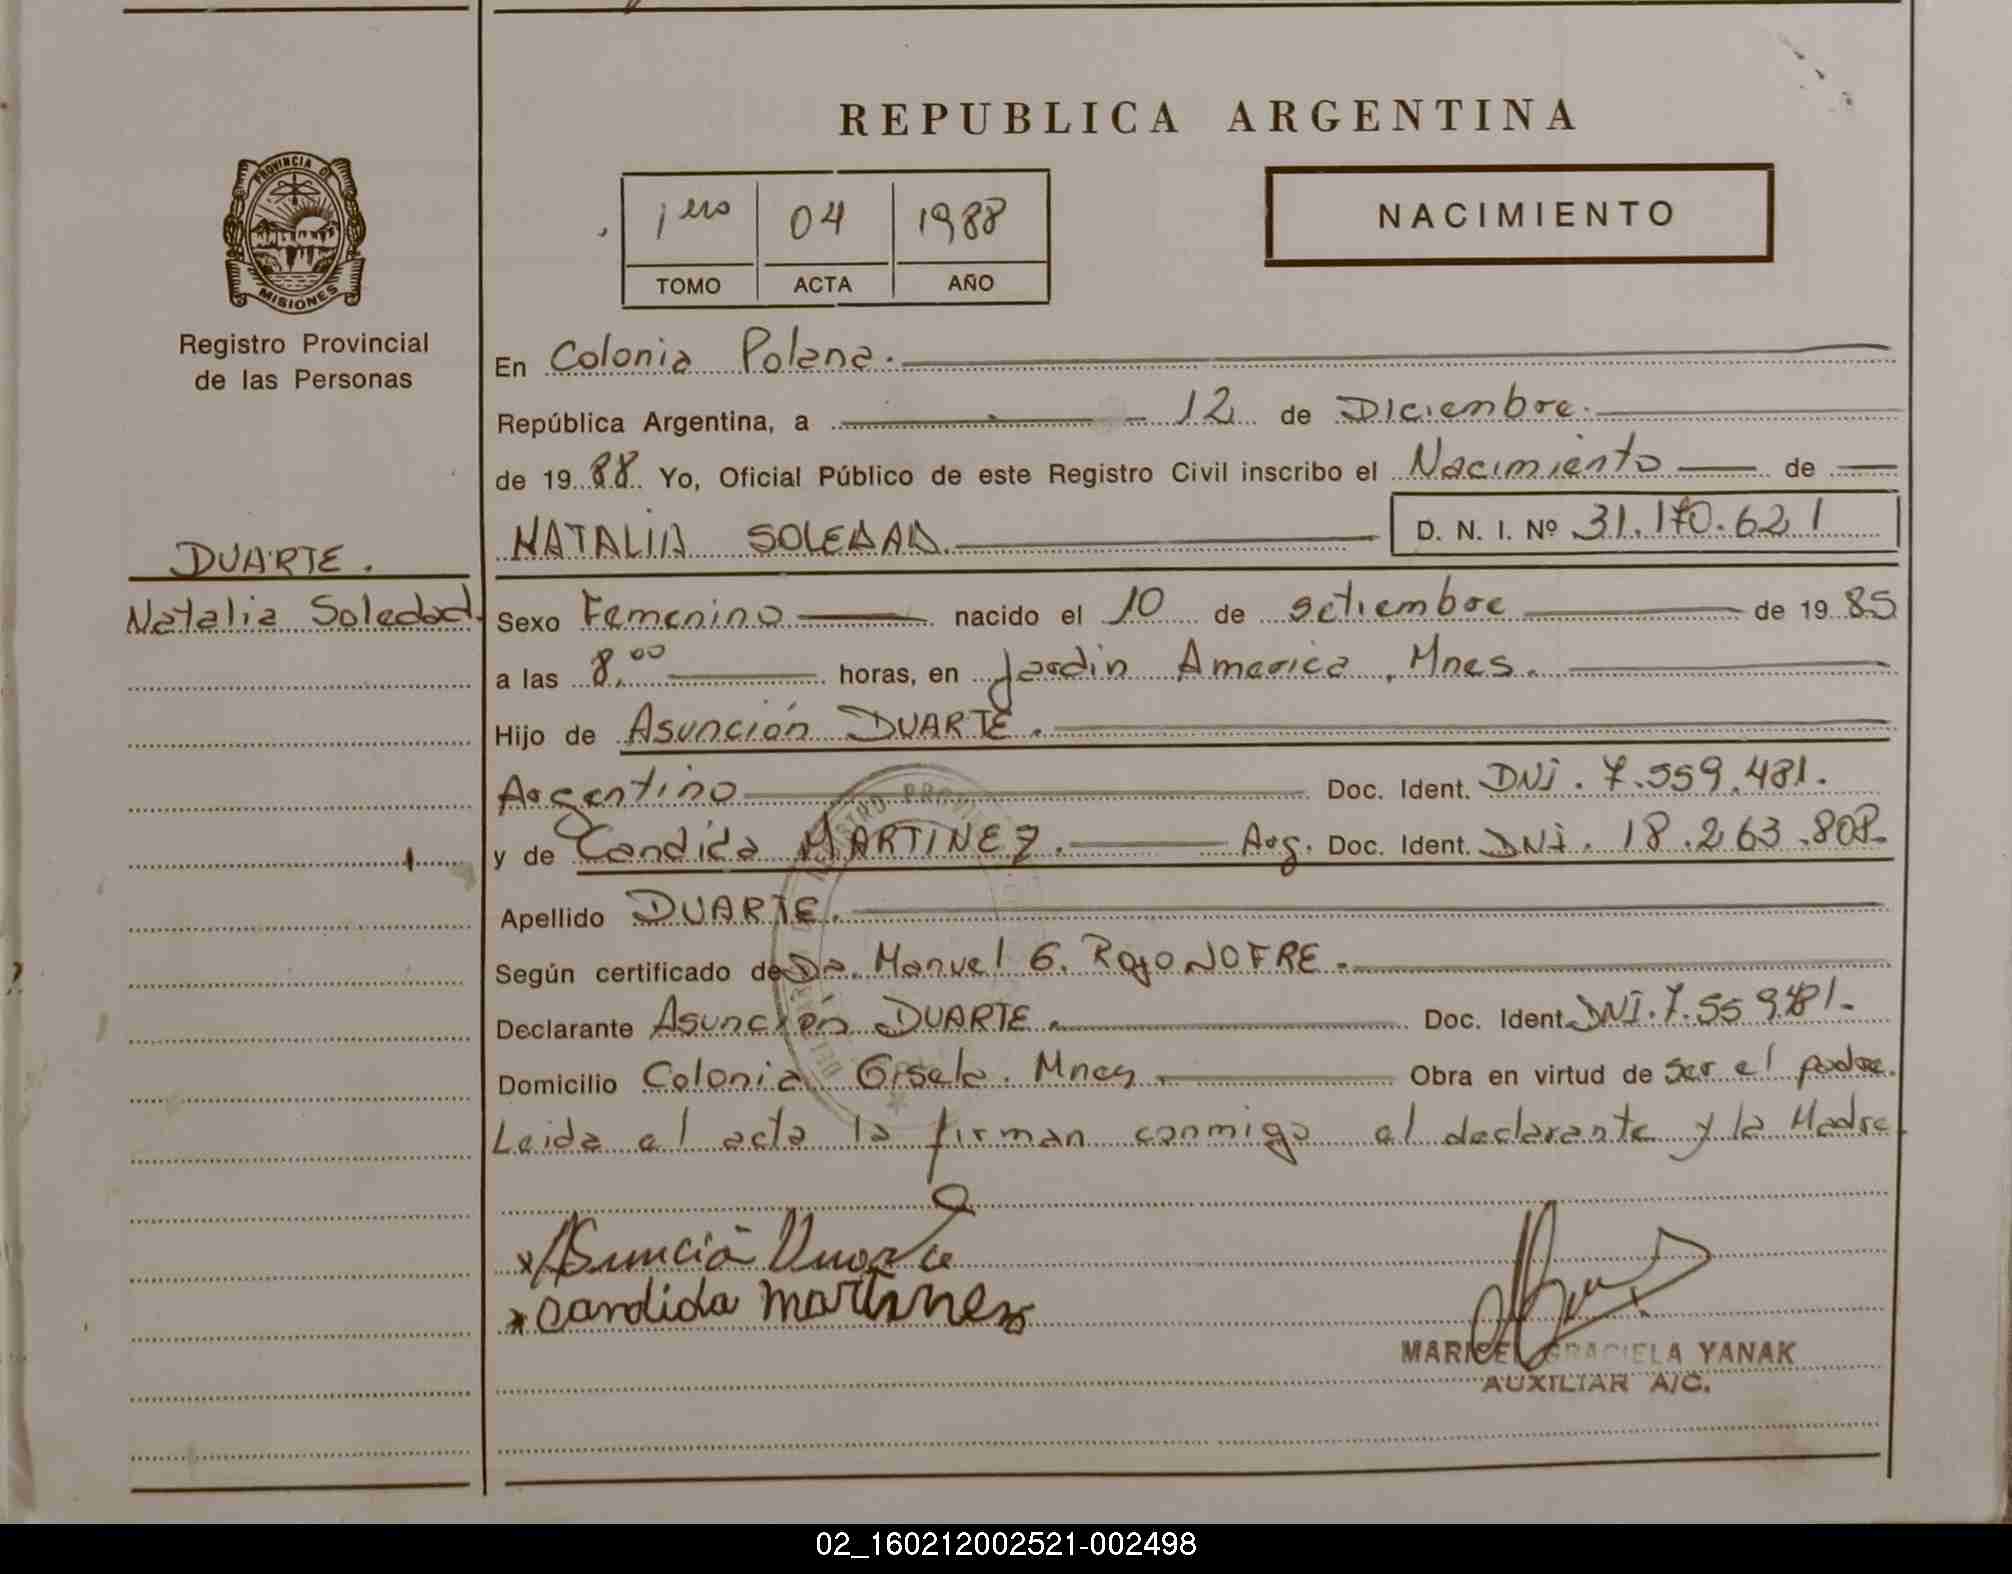 REPUBLICA ARGENTINA
PROVINCIA DE
MISIONES
Registro Provincial
de las Personas
1ero 04 1988
TOMO ACTA AÑO
NACIMIENTO
En Colonia Polana.
República Argentina, a 12 de Diciembre.
de 1988 Yo, Oficial Público de este Registro Civil inscribo el Nacimiento de
NATALIA SOLEDAD. D. N. I. Nº 31.170.621
DUARTE.
Natalia Soledad.
Sexo Femenino nacido el 10 de setiembre de 1985
a las 8,00 horas, en Jardin America, Mnes.
Hijo de Asunción DUARTE.
Argentino Doc. Ident. DNI. 7.559.481.
y de Candida MARTINEZ. Arg. Doc. Ident. DNI. 18.263.808.
Apellido DUARTE.
Según certificado de Dr. Manuel G. Rojo NOFRE.
Declarante Asunción DUARTE. Doc. Ident. DNI. 7.559.481.
Domicilio Colonia Gisela. Mnes. Obra en virtud de ser el padre.
Leida el acta la firman conmigo el declarante y la Madre
x Asunción Duarte
x candida martinez
MARICEL GRACIELA YANAK
AUXILIAR A/C.
02_160212002521-002498